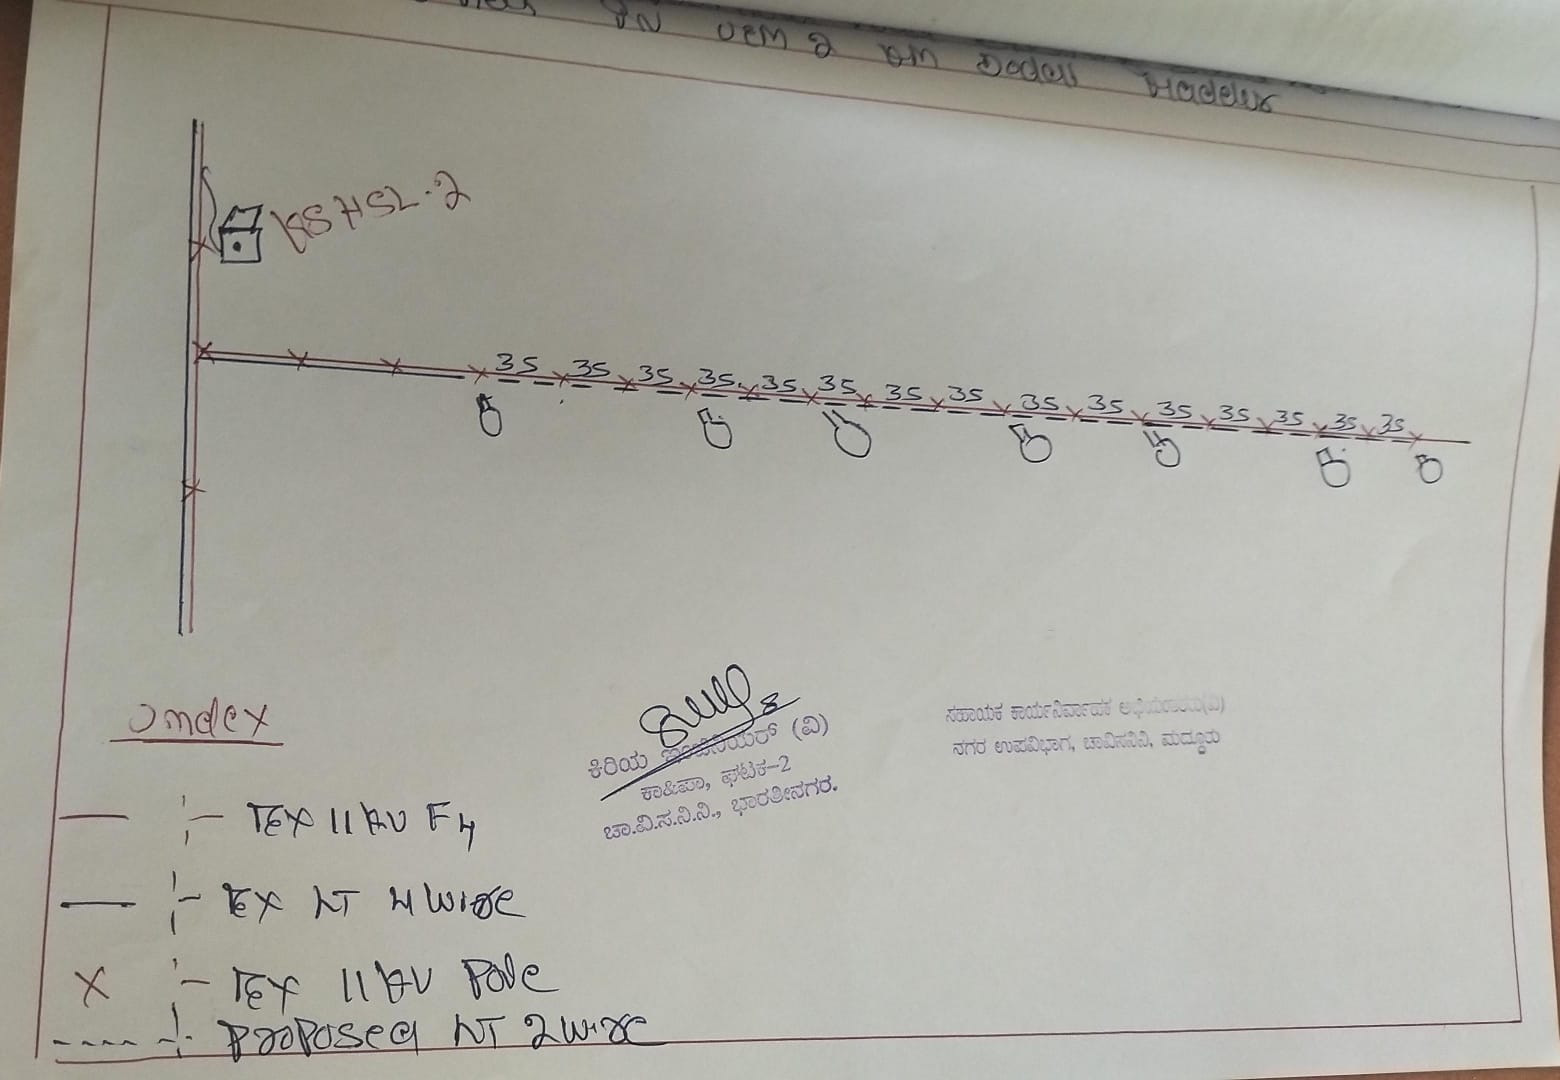 in
KSHSL-2
35 35 35 35 35 35 35 35 35 35 35 35 35 35 35
Index
:- EX 11 KV F4
:- EX LT 4 wire
X :- EX 11 KV Pole
:- Proposed LT 2 wire
ಕಿರಿಯ ಇಂಜಿನಿಯರ್ (ವಿ)
ಕಾ&ಪಾ, ಘಟಕ-2
ಚಾ.ವಿ.ಸ.ನಿ.ನಿ., ಭಾರತೀನಗರ.
ಸಹಾಯಕ ಕಾರ್ಯನಿರ್ವಾಹಕ ಅಭಿಯಂತರರು(ವಿ)
ನಗರ ಉಪವಿಭಾಗ, ಚಾವಿಸನಿನಿ, ಮದ್ದೂರು